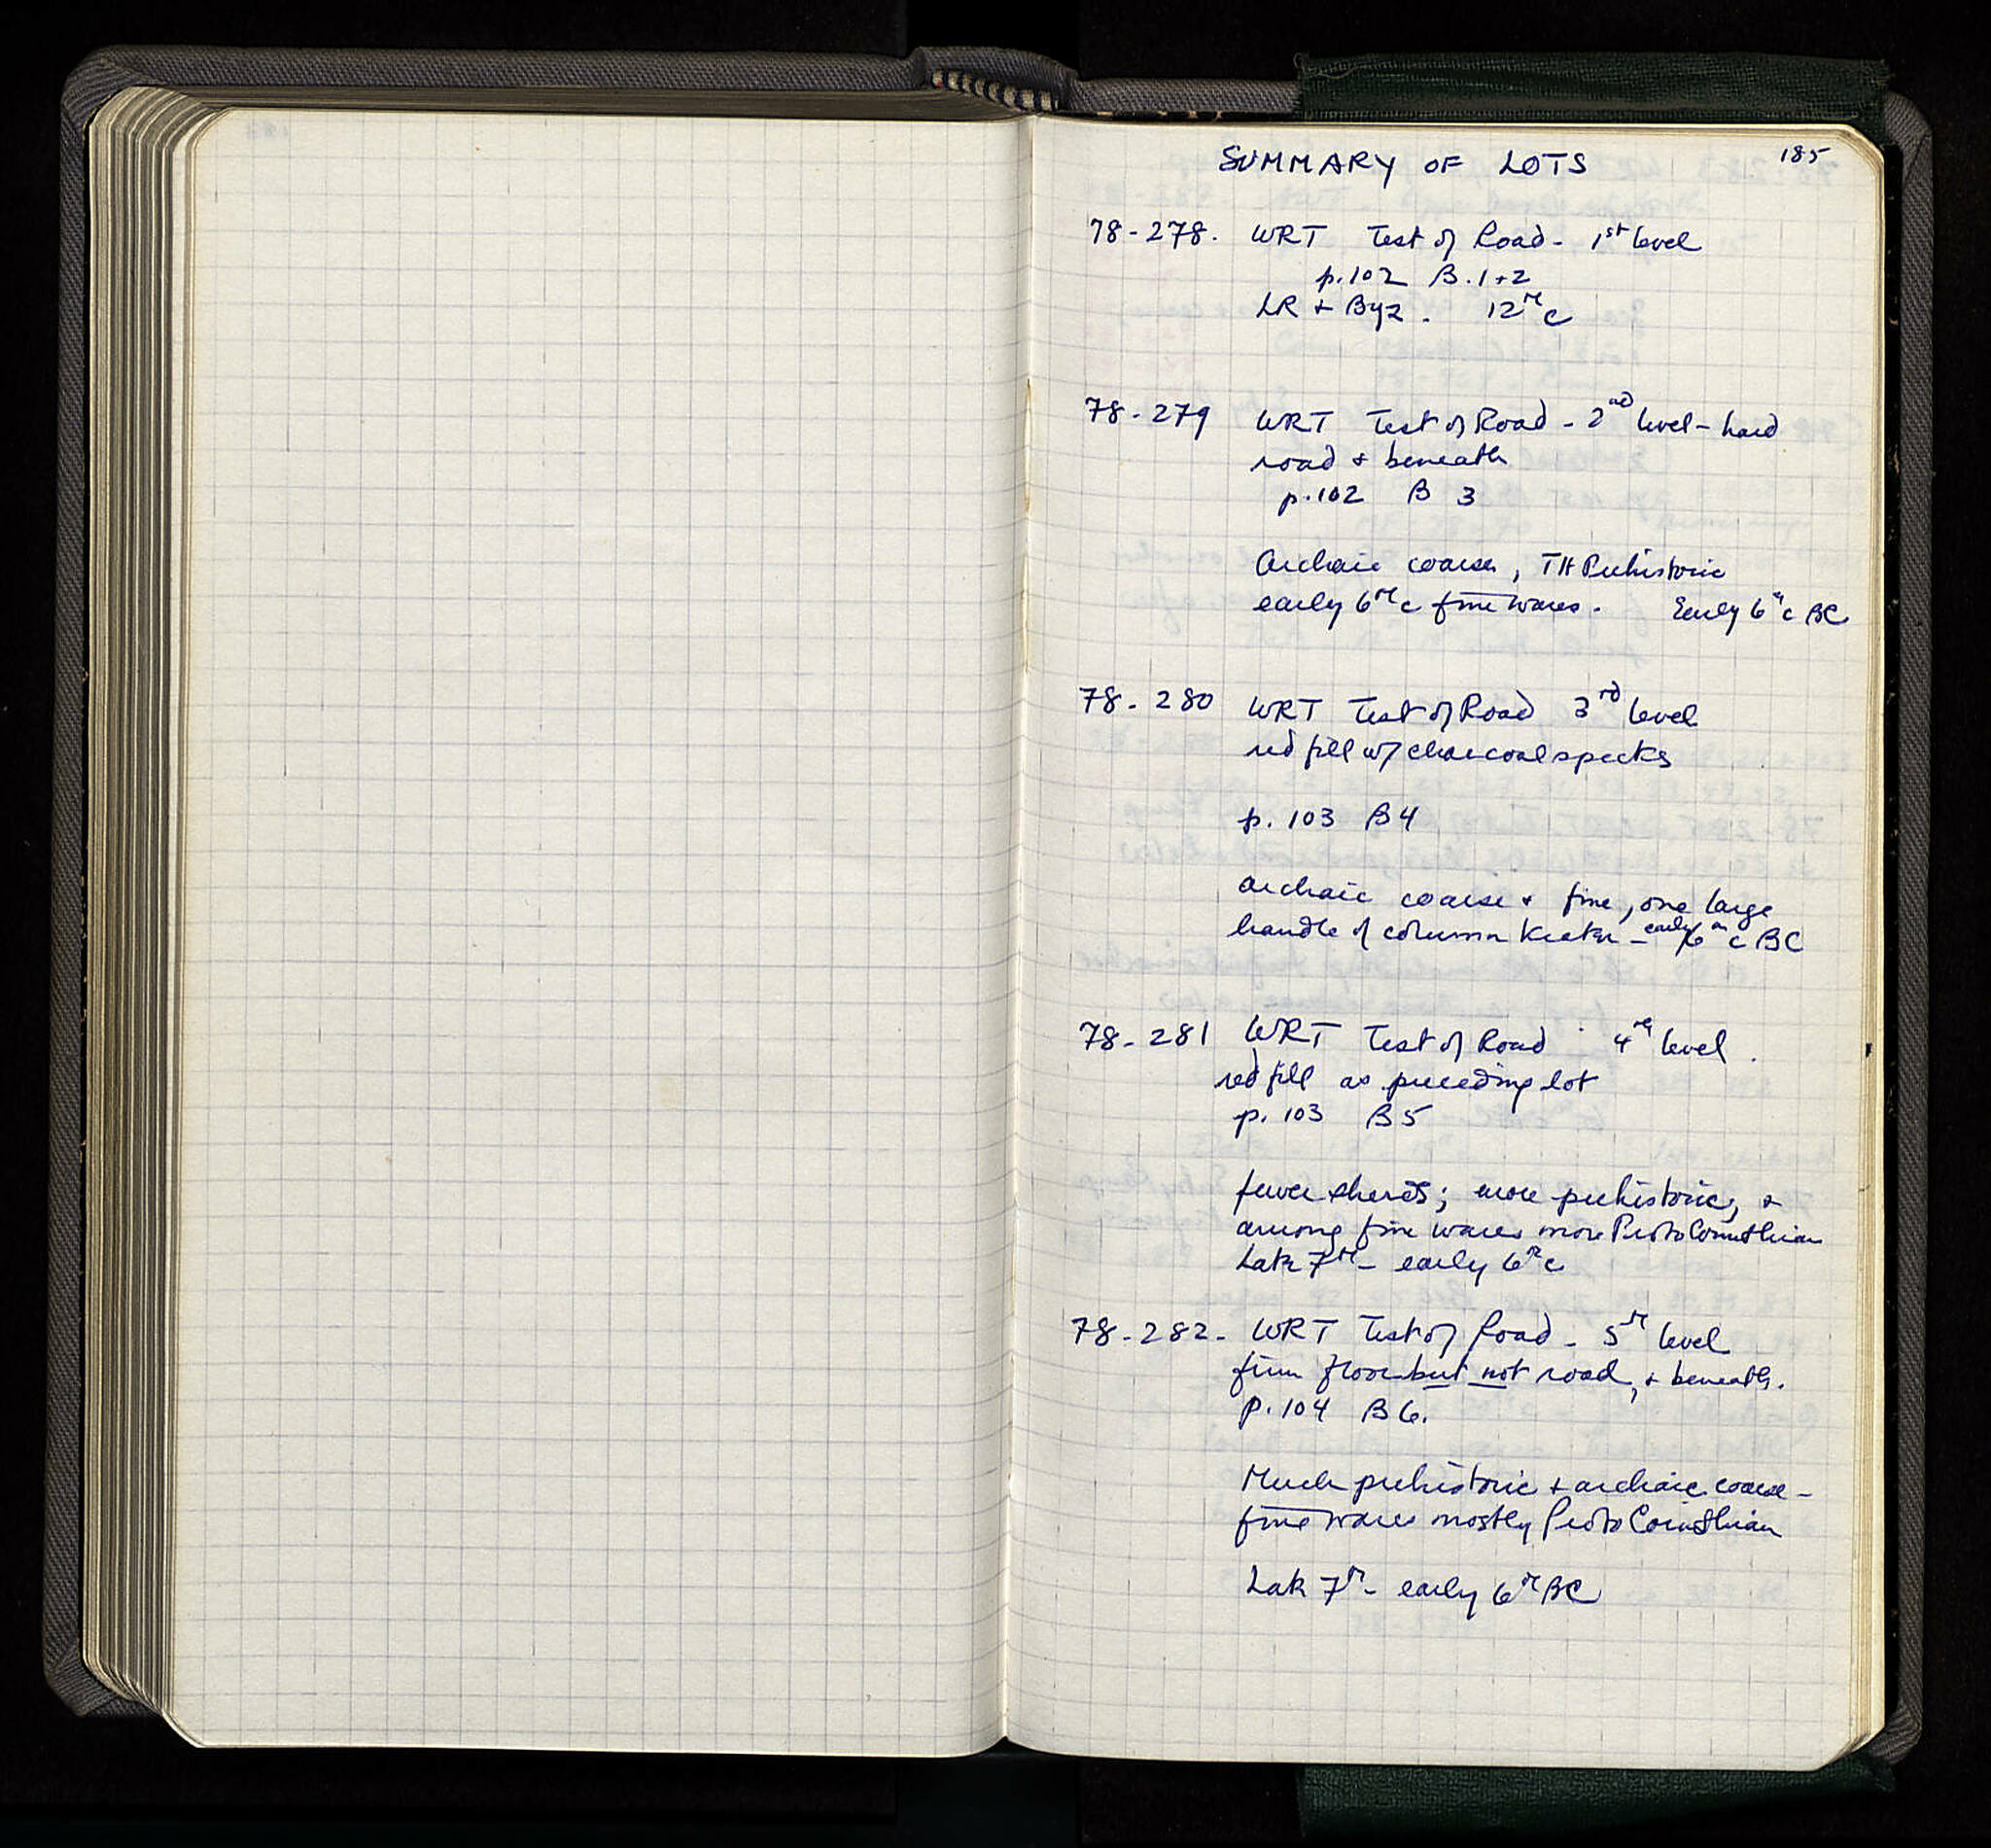 185
SUMMARY OF LOTS
78-278. WRT Test of Road - 1st level
p.102 B.1+2
LR + Byz. 12th c
78-279 WRT Test of Road - 2nd level - hard
road + beneath
p.102 B 3
Archaic coarse, TH Prehistoric
early 6th c fine wares. Early 6th c BC
78-280 WRT Test of Road 3rd level
red fill w/ charcoal specks
p. 103 B4
archaic coarse + fine, one large
handle of column krater - early 6th c BC
78-281 WRT Test of Road 4th level.
red fill as preceding lot
p. 103 B5
fewer sherds; more prehistoric, +
among fine wares more ProtoCorinthian
Late 7th - early 6th c
78-282- WRT Test of Road - 5th level
firm floor but not road, + beneath.
p. 104 B6.
Much prehistoric + archaic coarse -
fine wares mostly ProtoCorinthian
Late 7th - early 6th BC